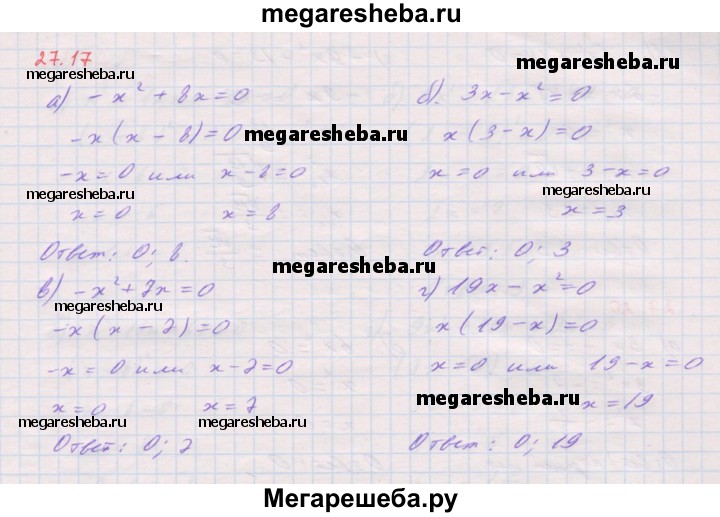 megaresheba.ru
27.17
megaresheba.ru
а) -x² + 8x = 0
-x(x - 8) = 0
megaresheba.ru
-x = 0 или x - 8 = 0
megaresheba.ru
x = 0 x = 8
Ответ: 0; 8.
б). 3x - x² = 0
x(3 - x) = 0
x = 0 или 3 - x = 0
megaresheba.ru
x = 3
Ответ: 0; 3
megaresheba.ru
в) -x² + 7x = 0
megaresheba.ru
-x(x - 7) = 0
-x = 0 или x - 7 = 0
x = 0 x = 7
megaresheba.ru
Ответ: 0; 7
г) 19x - x² = 0
x(19 - x) = 0
x = 0 или 19 - x = 0
megaresheba.ru
x = 19
Ответ: 0; 19
Мегарешеба.ру